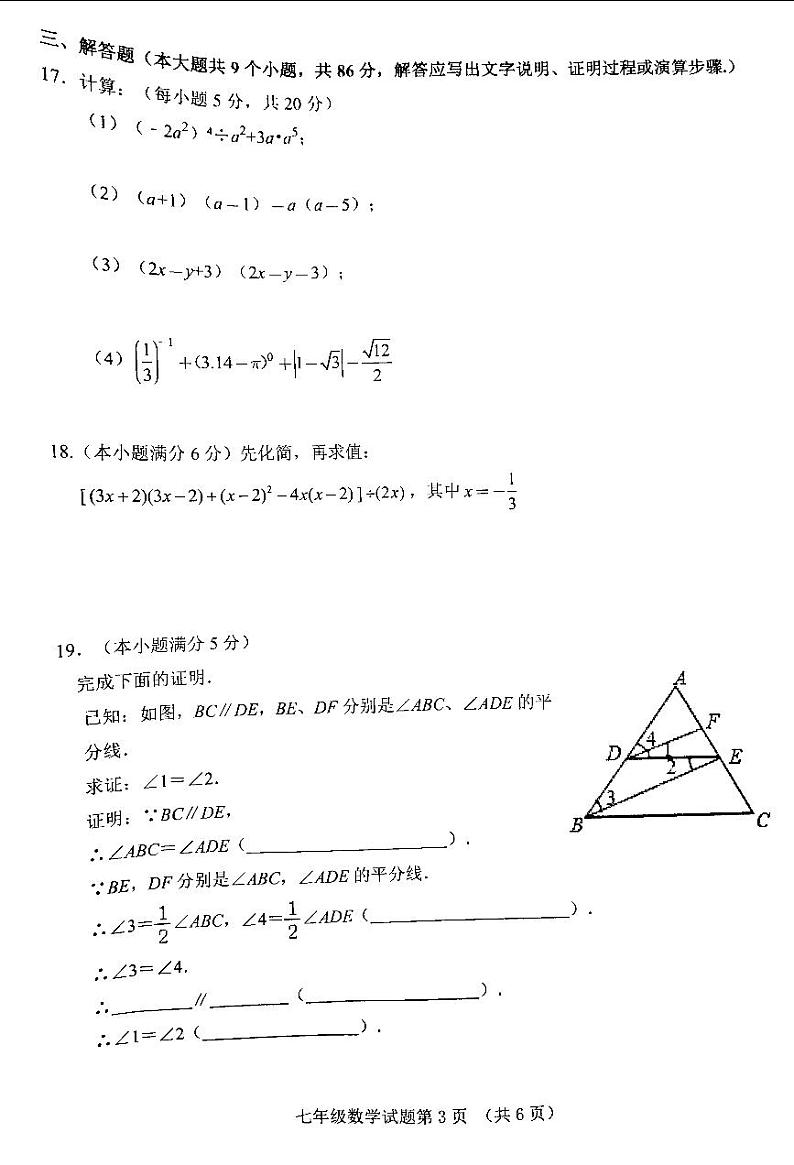 三、解答题（本大题共 9 个小题，共 86 分，解答应写出文字说明、证明过程或演算步骤.）
17．计算：（每小题 5 分，共 20 分）
（1）（﹣2a²）⁴÷a²+3a•a⁵；
（2）（a+1）（a－1）－a（a－5）；
（3）（2x－y+3）（2x－y－3）；
（4）(1/3)⁻¹＋(3.14－π)⁰＋|1－√3|－√12/2
18.（本小题满分 6 分）先化简，再求值：
[(3x＋2)(3x－2)＋(x－2)²－4x(x－2)]÷(2x)，其中 x＝－1/3
19．（本小题满分 5 分）
完成下面的证明．
已知：如图，BC∥DE，BE、DF 分别是∠ABC、∠ADE 的平
分线．
求证：∠1＝∠2．
证明：∵BC∥DE，
∴∠ABC＝∠ADE（__________________）．
∵BE，DF 分别是∠ABC，∠ADE 的平分线．
∴∠3＝1/2∠ABC，∠4＝1/2∠ADE（__________________）．
∴∠3＝∠4．
∴________∥________（________________）．
∴∠1＝∠2（______________）．
A
F
4
D
1
E
2
3
B
C
七年级数学试题第 3 页 （共 6 页）